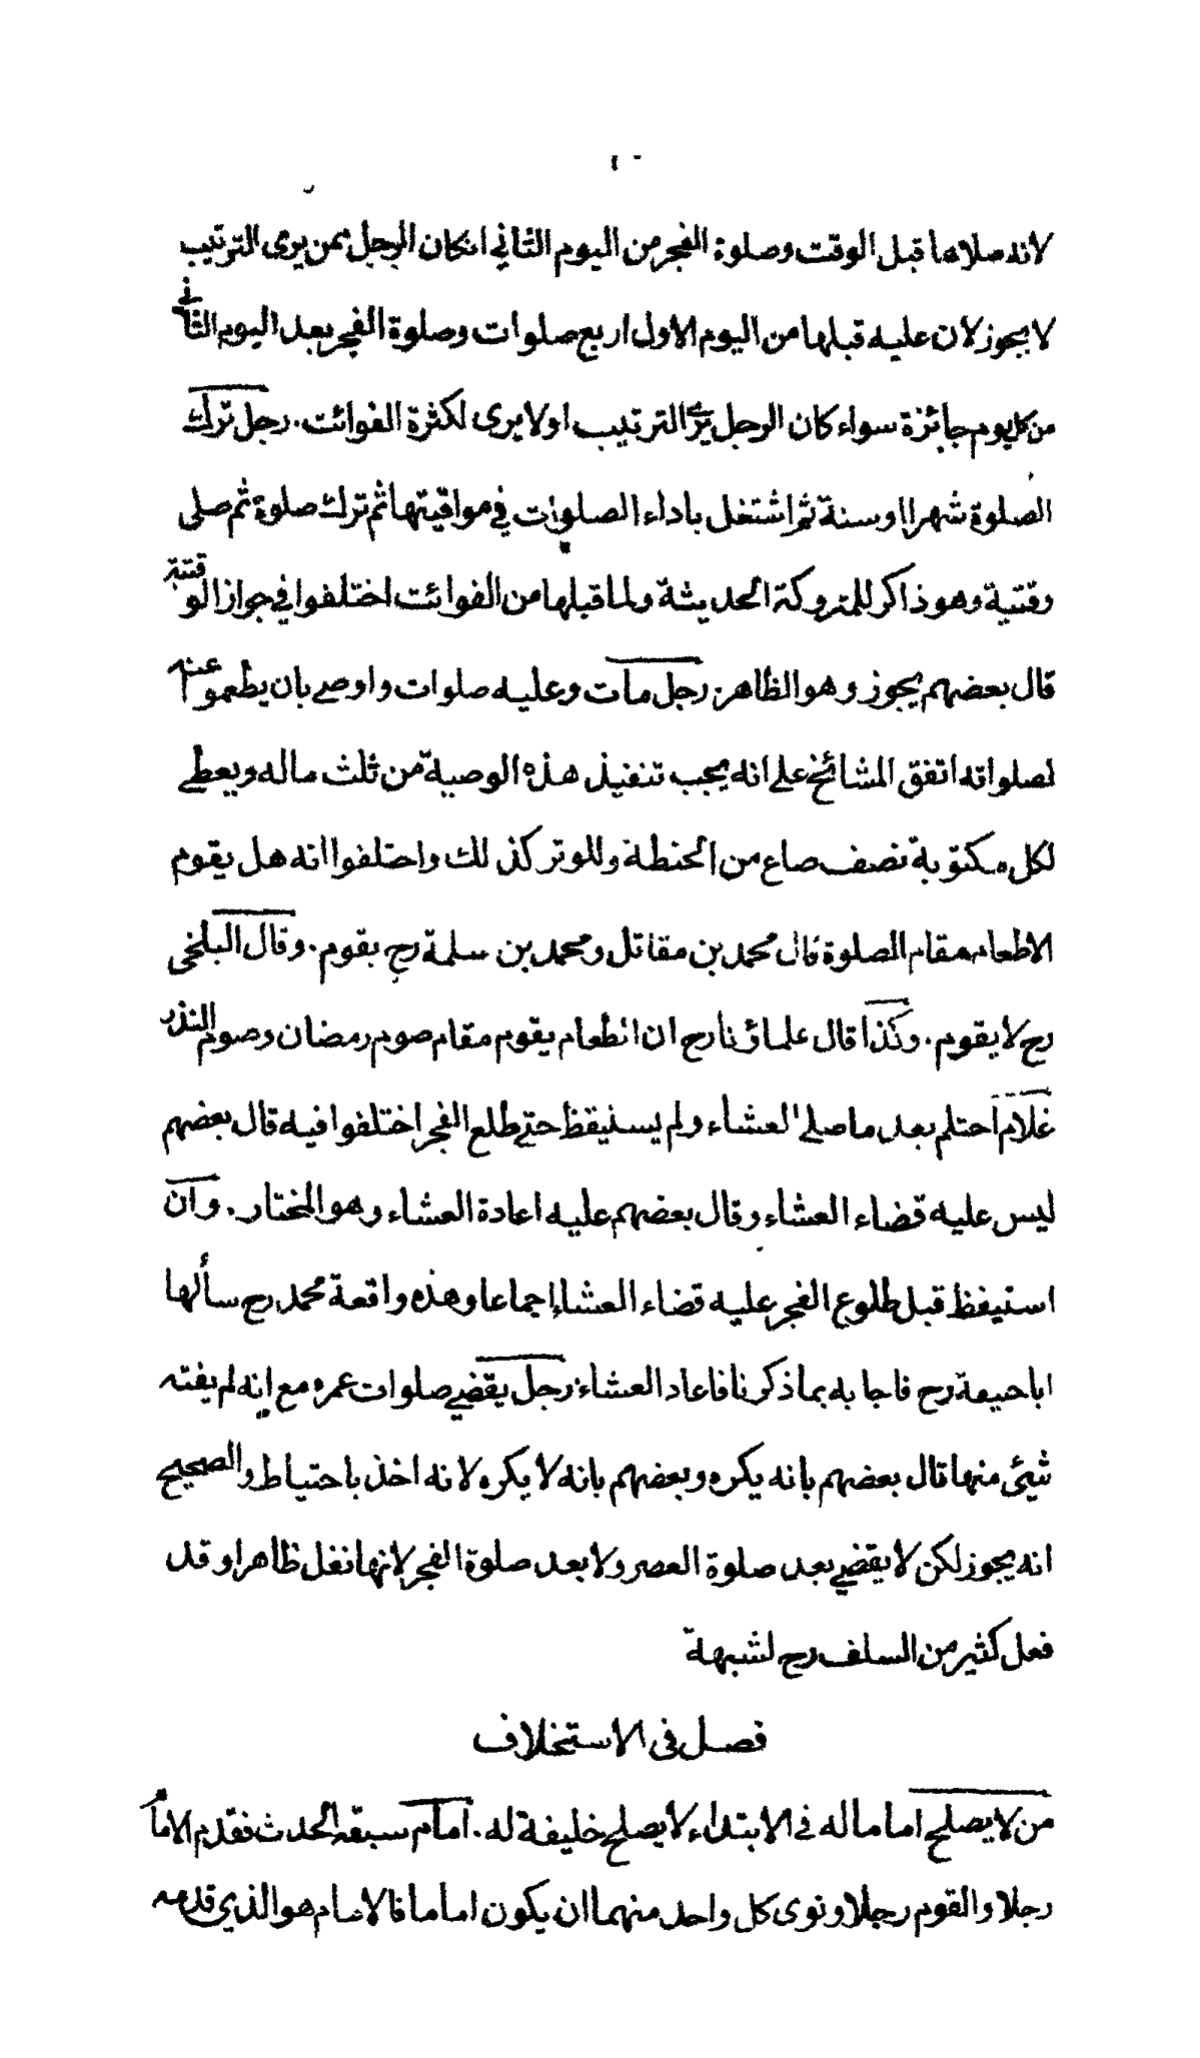 لانه صلاها قبل الوقت وصلوة الفجر من اليوم الثاني انكان الرجل ممن يرى الترتيب
لا يجوز لان عليه قبلها من اليوم الاول اربع صلوات وصلوة الفجر بعد اليوم الثاني
من كل يوم جائزة سواء كان الرجل يرى الترتيب او لا يرى لكثرة الفوائت. رجل ترك
الصلوة شهرا او سنة ثم اشتغل باداء الصلوات في مواقيتها ثم ترك صلوة ثم صلى
وقتية وهو ذاكر للمتروكة الحديثة ولما قبلها من الفوائت اختلفوا في جواز الوقتية
قال بعضهم يجوز وهو الظاهر. رجل مات وعليه صلوات واوصى بان يطعموا عنه
لصلواته اتفق المشائخ على انه يجب تنفيذ هذه الوصية من ثلث ماله ويعطى
لكل مكتوبة نصف صاع من الحنطة وللوتر كذلك واختلفوا انه هل يقوم
الاطعام مقام الصلوة قال محمد بن مقاتل ومحمد بن سلمة رح يقوم. وقال البلخى
رح لا يقوم. وكذا قال علماؤنا رح ان الطعام يقوم مقام صوم رمضان وصوم النذر
غلام احتلم بعد ما صلى العشاء ولم يستيقظ حتى طلع الفجر اختلفوا فيه قال بعضهم
ليس عليه قضاء العشاء وقال بعضهم عليه اعادة العشاء وهو المختار. وان
استيقظ قبل طلوع الفجر عليه قضاء العشاء اجماعا وهذه واقعة محمد رح سألها
ابا حنيفة رح فاجابه بما ذكرنا فاعاد العشاء. رجل يقضي صلوات عمره مع انه لم يفته
شيئ منها قال بعضهم بانه يكره وبعضهم بانه لا يكره لانه اخذ باحتياط والصحيح
انه يجوز لكن لا يقضي بعد صلوة العصر ولا بعد صلوة الفجر لانها نفل ظاهرا وقد
فعل كثير من السلف رح لشبهة
فصل فى الاستخلاف
من لا يصلح اماما له في الابتداء لا يصلح خليفة له. امام سبقه الحدث فقدم الامام
رجلا والقوم رجلا ونوى كل واحد منهما ان يكون اماما فالامام هو الذي قدمه